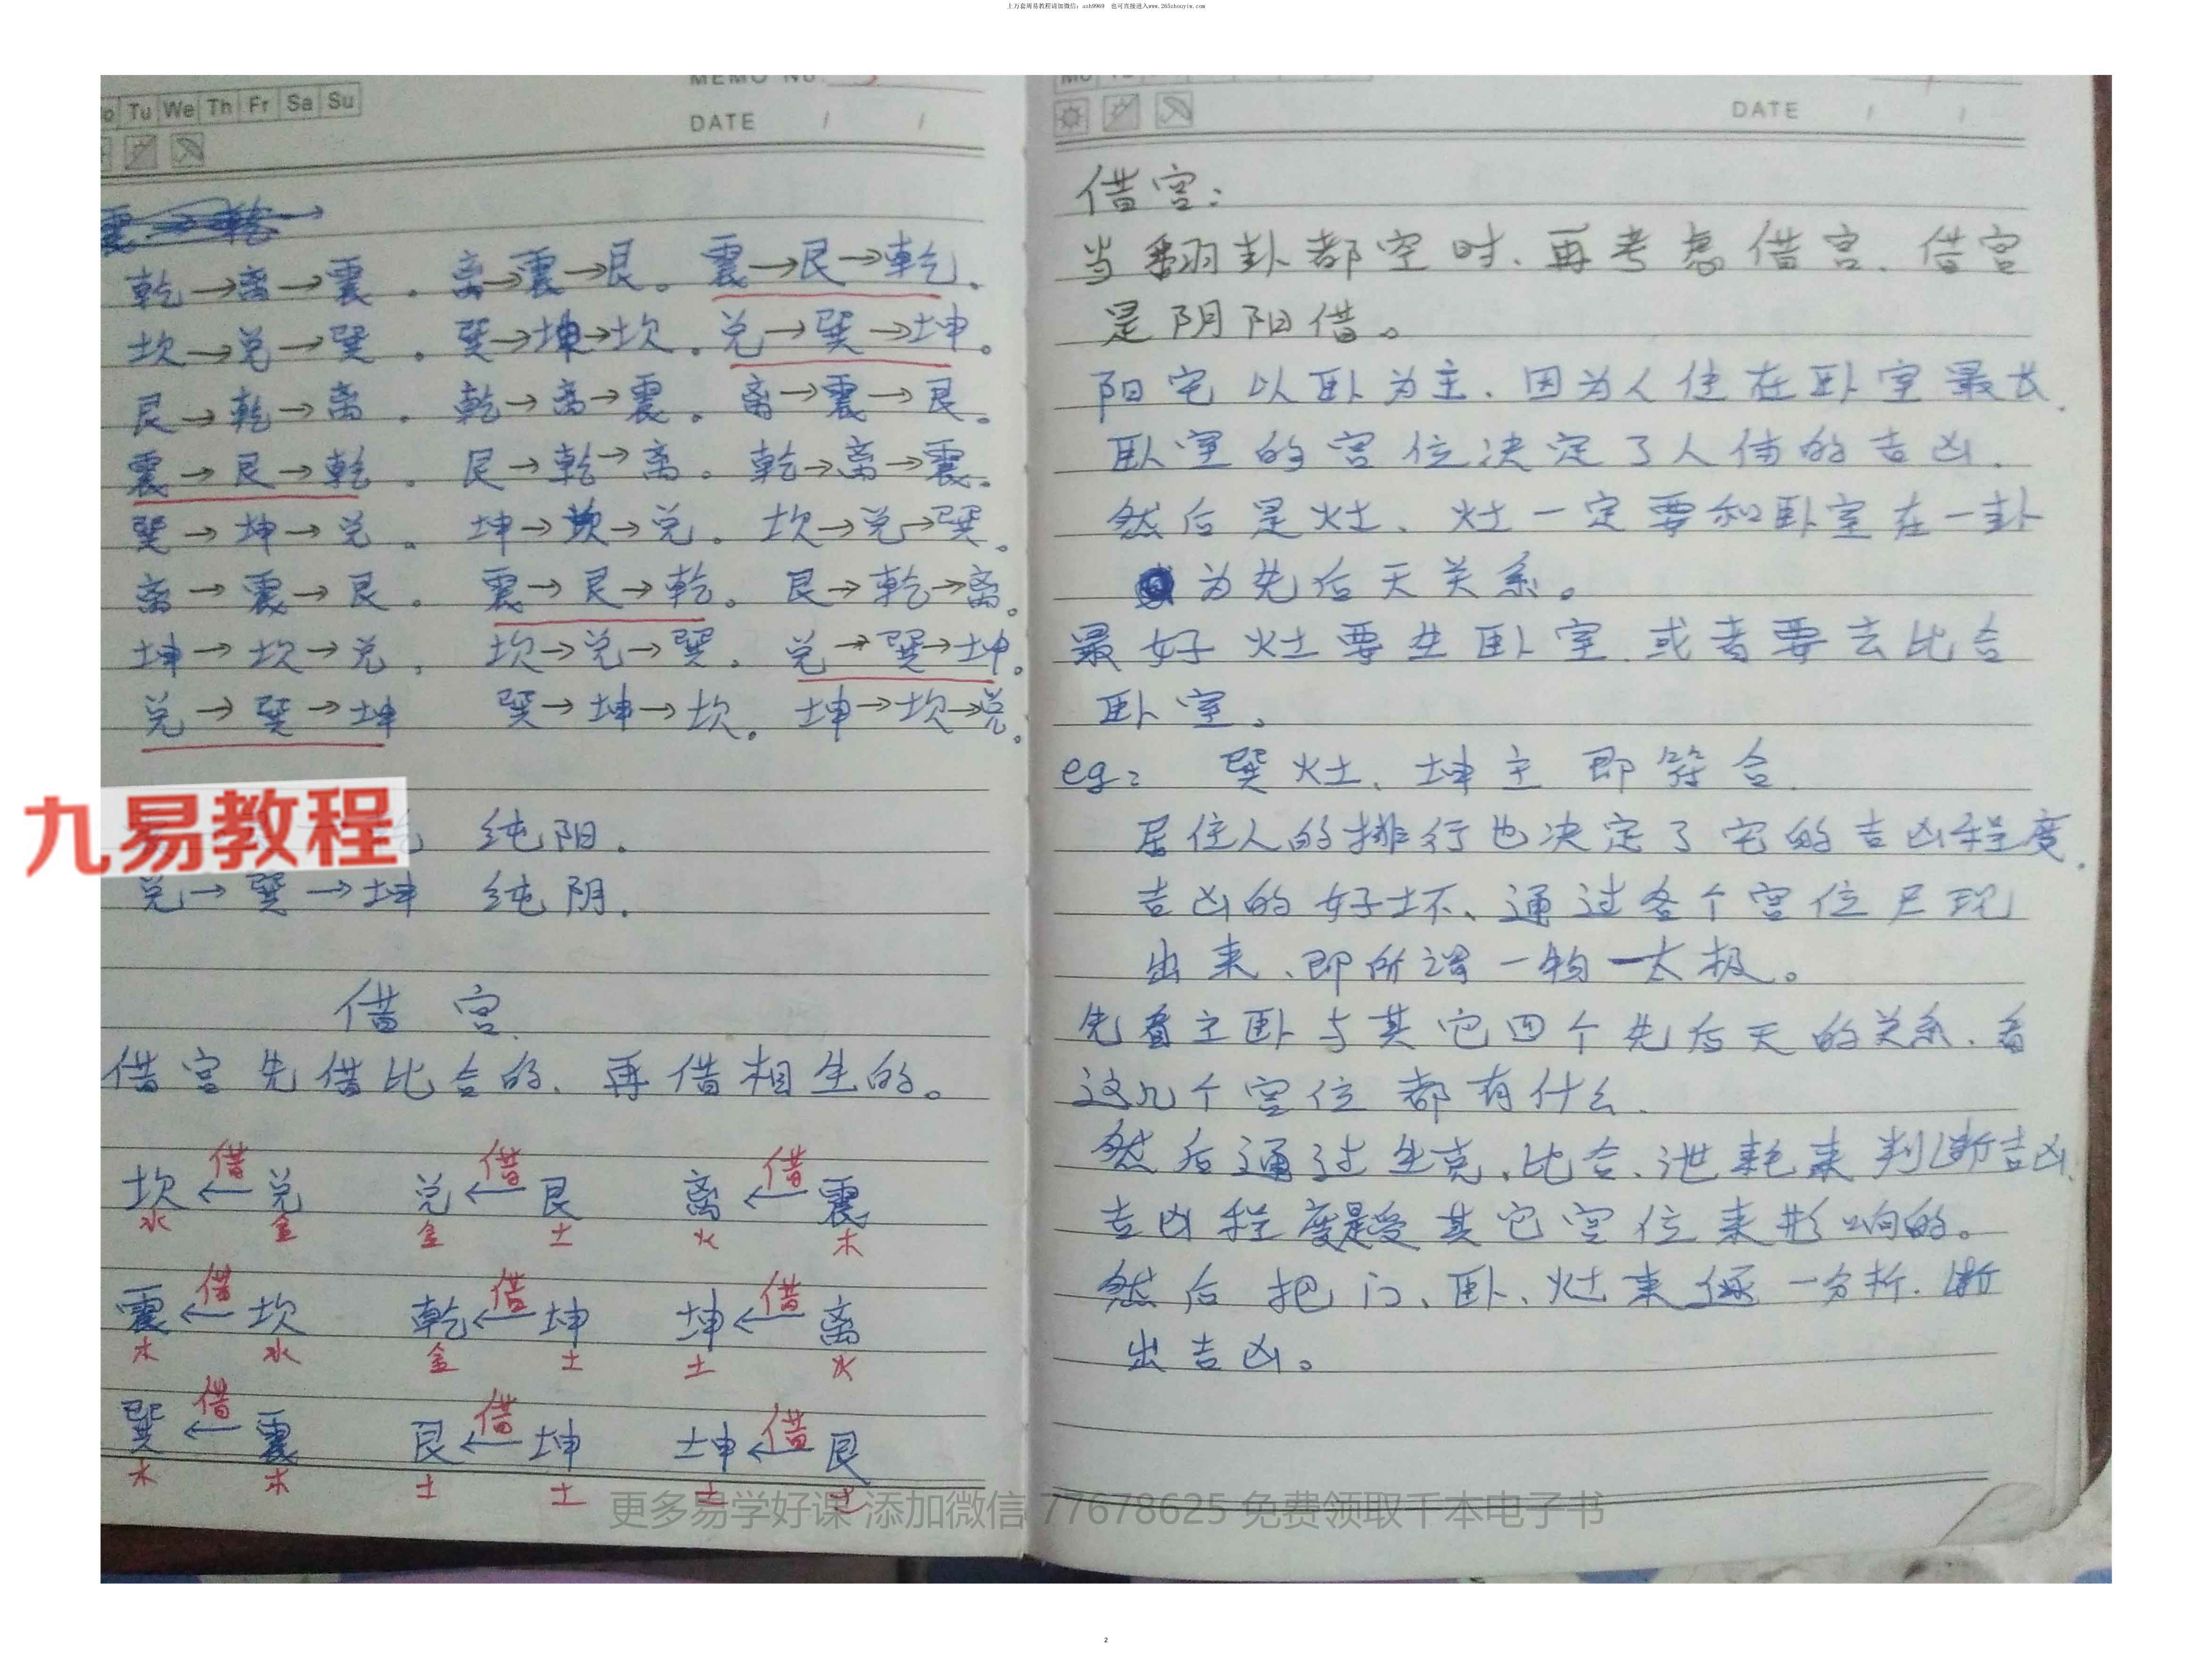 上万套周易教程请加微信：axh9969 也可直接进入www.265zhouyiw.com
MEMO NO. 3
Tu We Th Fr Sa Su
DATE / /
乾→离→震. 离→震→艮。震→艮→乾.
坎→兑→巽. 巽→坤→坎. 兑→巽→坤。
艮→乾→离. 乾→离→震。离→震→艮。
震→艮→乾. 艮→乾→离。乾→离→震。
巽→坤→兑。坤→坎→兑。坎→兑→巽。
离→震→艮. 震→艮→乾。艮→乾→离。
坤→坎→兑. 坎→兑→巽. 兑→巽→坤。
兑→巽→坤 巽→坤→坎。坤→坎→兑。
九易教程
纯阳.
兑→巽→坤 纯阴.
借宫.
借宫先借比合的、再借相生的。
借 借 借
坎←兑 兑←艮 离←震
水 金 金 土 火 木
借 借 借
震←坎 乾←坤 坤←离
木 水 金 土 土 火
借 借 借
巽←震 艮←坤 坤←艮
木 木 土 土 土 土
DATE / /
借宫：
当翻卦都空时、再考虑借宫. 借宫
是阴阳借。
阳宅以卧为主. 因为人住在卧室最长.
卧室的宫位决定了人体的吉凶.
然后是灶、灶一定要和卧室在一卦
为先后天关系。
最好灶要生卧室. 或者要去比合
卧室。
eg: 巽灶、坤主即符合.
居住人的排行也决定了宅的吉凶程度.
吉凶的好坏、通过各个宫位尸现
出来、即所谓一物一太极。
先看主卧与其它四个先后天的关系. 看
这几个宫位都有什么.
然后通过生克、比合、泄耗来判断吉凶.
吉凶程度是受其它宫位来影响的。
然后把门、卧、灶来逐一分析. 断
出吉凶。
更多易学好课 添加微信 77678625 免费领取千本电子书
2